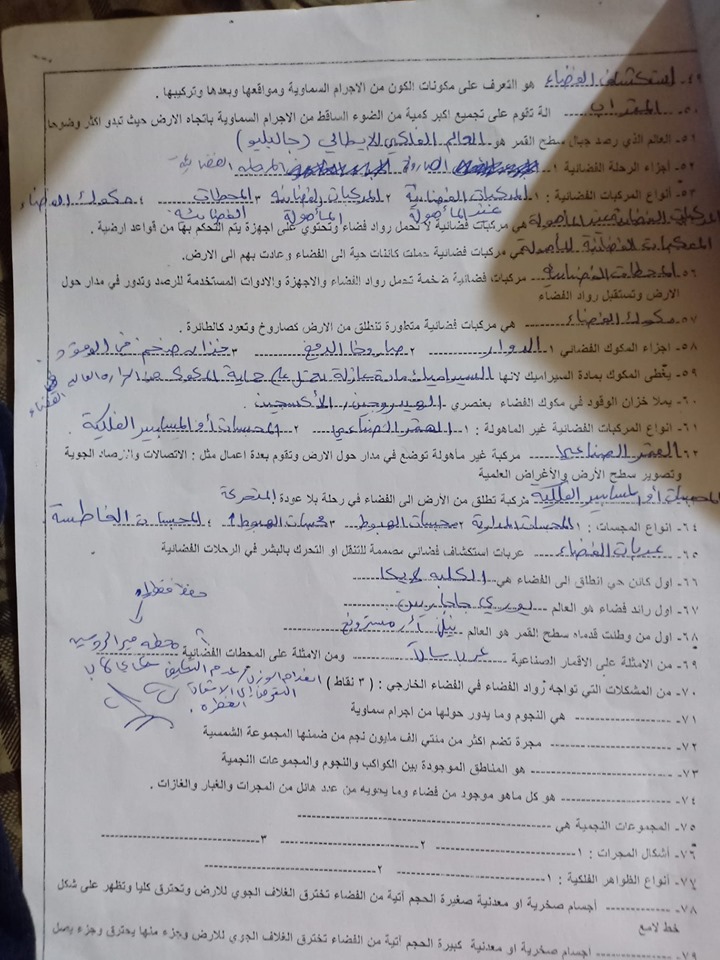 ٤٩. استكشاف الفضاء هو التعرف على مكونات الكون من الاجرام السماوية ومواقعها وبعدها وتركيبها .
٥٠. المقراب الة تقوم على تجميع اكبر كمية من الضوء الساقط من الاجرام السماوية باتجاه الارض حيث تبدو اكثر وضوحا
٥١. العالم الذي رصد جبال سطح القمر هو العالم الفلكي الإيطالي (جاليليو)
٥٢. اجزاء الرحلة الفضائية ١ الصاروخ المركبة الفضائية
٥٣. أنواع المركبات الفضائية : ١ المركبات الفضائية غير المأهولة ٢ المركبات الفضائية المأهولة ٣ المحطات الفضائية ٤ مكوك الفضاء
المركبات الفضائية غير المأهولة هي مركبات فضائية لا تحمل رواد فضاء وتحتوي على اجهزة يتم التحكم بها من قواعد ارضية .
الفضائية المأهولة هي مركبات فضائية حملت كائنات حية الى الفضاء وعادت بهم الى الارض.
٥٦. المحطات الفضائية مركبات فضائية ضخمة تحمل رواد الفضاء والاجهزة والادوات المستخدمة للرصد وتدور في مدار حول
الارض وتستقبل رواد الفضاء
٥٧. مكوك الفضاء هي مركبات فضائية متطورة تنطلق من الارض كصاروخ وتعود كالطائرة .
٥٨. اجزاء المكوك الفضائي ١ الدوار ٢ صاروخا الدفع ٣ خزان ضخم من الوقود
٥٩. يغطى المكوك بمادة السيراميك لانها السيراميك مادة عازلة تعمل على حماية المكوك من الحرارة العالية في الفضاء
٦٠. يملا خزان الوقود في مكوك الفضاء بعنصري الهيدروجين، الأكسجين
٦١. انواع المركبات الفضائية غير الماهولة : ١ القمر الصناعي ٢ المجسات أو المسابير الفلكية
٦٢. القمر الصناعي مركبة غير مأهولة توضع في مدار حول الارض وتقوم بعدة اعمال مثل : الاتصالات والارصاد الجوية
وتصوير سطح الأرض والأغراض العلمية
المجسات أو المسابير الفلكية مركبة تطلق من الأرض الى الفضاء في رحلة بلا عودة
٦٤. انواع المجسات : ١ المجسات المدارية ٢ مجسات الهبوط ٣ مجسات الهبوط المتحركة ٤ المجسات الغاطسة
٦٥. عربات الفضاء عربات استكشاف فضائي مصممة للتنقل او التحرك بالبشر في الرحلات الفضائية
٦٦. اول كائن حي انطلق الى الفضاء هي الكلبة لايكا
٦٧. اول رائد فضاء هو العالم يوري جاجارين
٦٨. اول من وطئت قدماه سطح القمر هو العالم نيل آرمسترونغ
٦٩. من الامثلة على الاقمار الصناعية عرب سات ومن الامثلة على المحطات الفضائية محطة مير الروسية
٧٠. من المشكلات التي تواجه رواد الفضاء في الفضاء الخارجي : ( ٣ نقاط ) انعدام الوزن /
٧١. هي النجوم وما يدور حولها من اجرام سماوية
٧٢. مجرة تضم اكثر من مئتي الف مليون نجم من ضمنها المجموعة الشمسية
٧٣. هو المناطق الموجودة بين الكواكب والنجوم والمجموعات النجمية
٧٤. هو كل ماهو موجود من فضاء وما يحويه من عدد هائل من المجرات والغبار والغازات .
٧٥. المجموعات النجمية هي
٧٦. أشكال المجرات : ١ ٢ ٣
٧٧. أنواع الظواهر الفلكية : ١ ٢
٧٨. أجسام صخرية او معدنية صغيرة الحجم أتية من الفضاء تخترق الغلاف الجوي للارض وتحترق كليا وتظهر على شكل
خط لامع
٧٩. اجسام صخرية او معدنية كبيرة الحجم أتية من الفضاء تخترق الغلاف الجوي للارض وجزء منها يحترق وجزء يصل